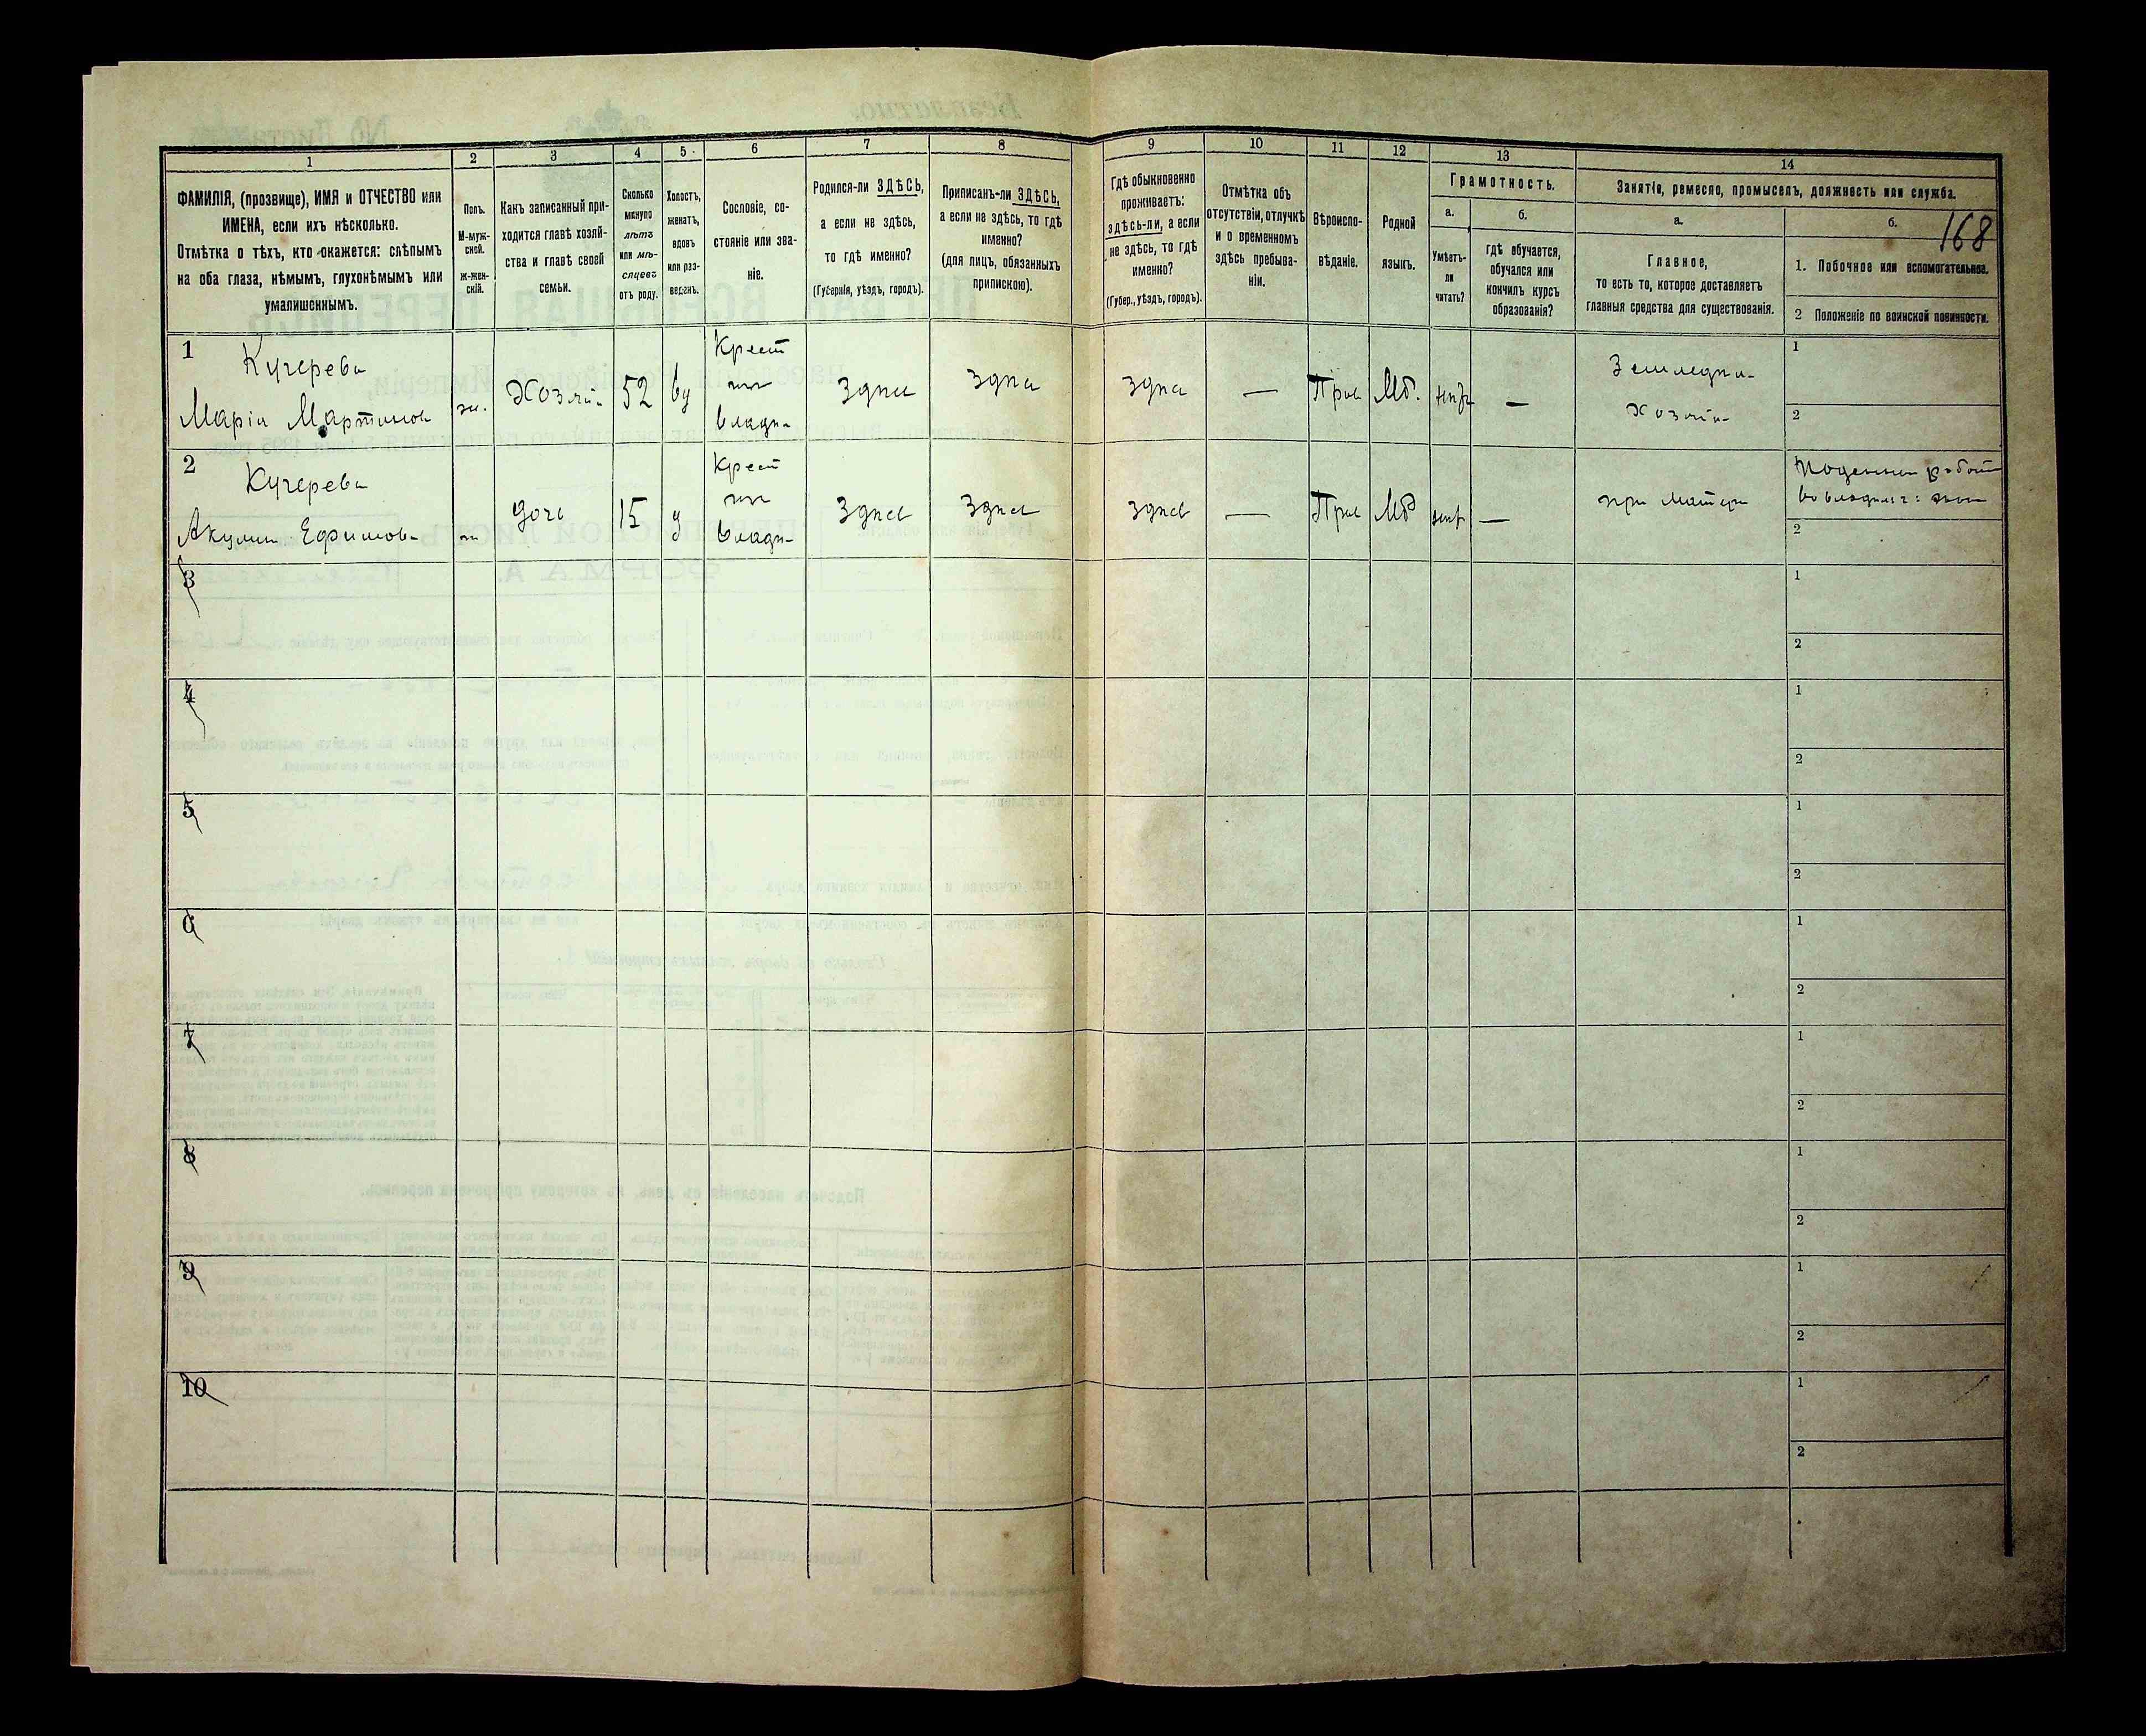 1
2
3
4
5
6
7
8
9
10
11
12
13
14
ФАМИЛІЯ, (прозвище), ИМЯ и ОТЧЕСТВО или
ИМЕНА, если ихъ нѣсколько.
Отмѣтка о тѣхъ, кто окажется: слѣпымъ
на оба глаза, нѣмымъ, глухонѣмымъ или
умалишеннымъ.
Полъ.
М-муж-
ской.
ж-жен-
скій.
Какъ записанный при-
ходится главѣ хозяй-
ства и главѣ своей
семьи.
Сколько
минуло
лѣтъ
или мѣ-
сяцевъ
отъ роду.
Холостъ,
женатъ,
вдовъ
или раз-
веденъ.
Сословіе, со-
стояніе или зва-
ніе.
Родился-ли ЗДѢСЬ,
а если не здѣсь,
то гдѣ именно?
(Губернія, уѣздъ, городъ).
Приписанъ-ли ЗДѢСЬ,
а если не здѣсь, то гдѣ
именно?
(для лицъ, обязанныхъ
припискою).
Гдѣ обыкновенно
проживаетъ:
здѣсь-ли, а если
не здѣсь, то гдѣ
именно?
(Губер., уѣздъ, городъ).
Отмѣтка объ
отсутствіи, отлучкѣ
и о временномъ
здѣсь пребыва-
ніи.
Вѣроиспо-
вѣданіе.
Родной
языкъ.
Грамотность.
а.
Умѣетъ-
ли
читать?
б.
гдѣ обучается,
обучался или
кончилъ курсъ
образованія?
Занятіе, ремесло, промыселъ, должность или служба.
а.
Главное,
то есть то, которое доставляетъ
главныя средства для существованія.
б.
168
1. Побочное или вспомогательное.
2 Положеніе по воинской повинности.
1
Кучерева
Марія Мартинов
ж.
Хозяй-
52
ву
Крест
владѣ-
здѣсь
здѣсь
здѣсь
—
Прав
Мб.
нѣт
—
Земледѣл-
Хозяй-
1
2
2
Кучерева
Акулин Ефимов-
дочь
15
д
Крест
владѣ-
здѣсь
здѣсь
здѣсь
—
Прав
Мб
нѣт
—
при матери
2
3
1
2
4
1
2
5
1
2
6
1
2
7
1
2
8
1
2
9
1
2
10
1
2